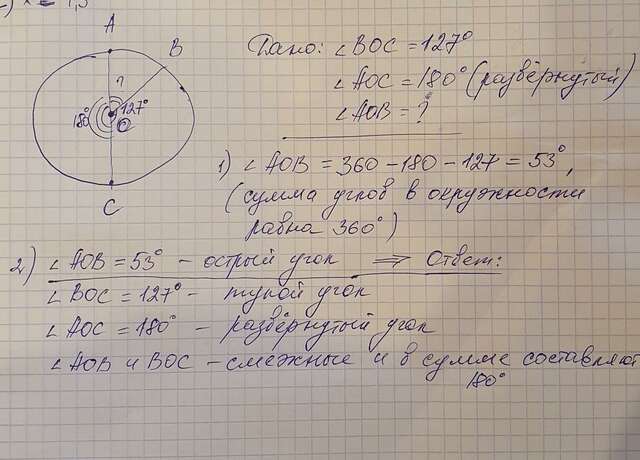 A
B
?
127°
180°
O
C
Дано: ∠BOC = 127°
∠AOC = 180° (развёрнутый)
∠AOB = ?
1) ∠AOB = 360 - 180 - 127 = 53°,
(сумма углов в окружности
равна 360°)
2) ∠AOB = 53° - острый угол ⇒ Ответ:
∠BOC = 127° - тупой угол
∠AOC = 180° - развёрнутый угол
∠AOB и BOC - смежные и в сумме составляют
180°